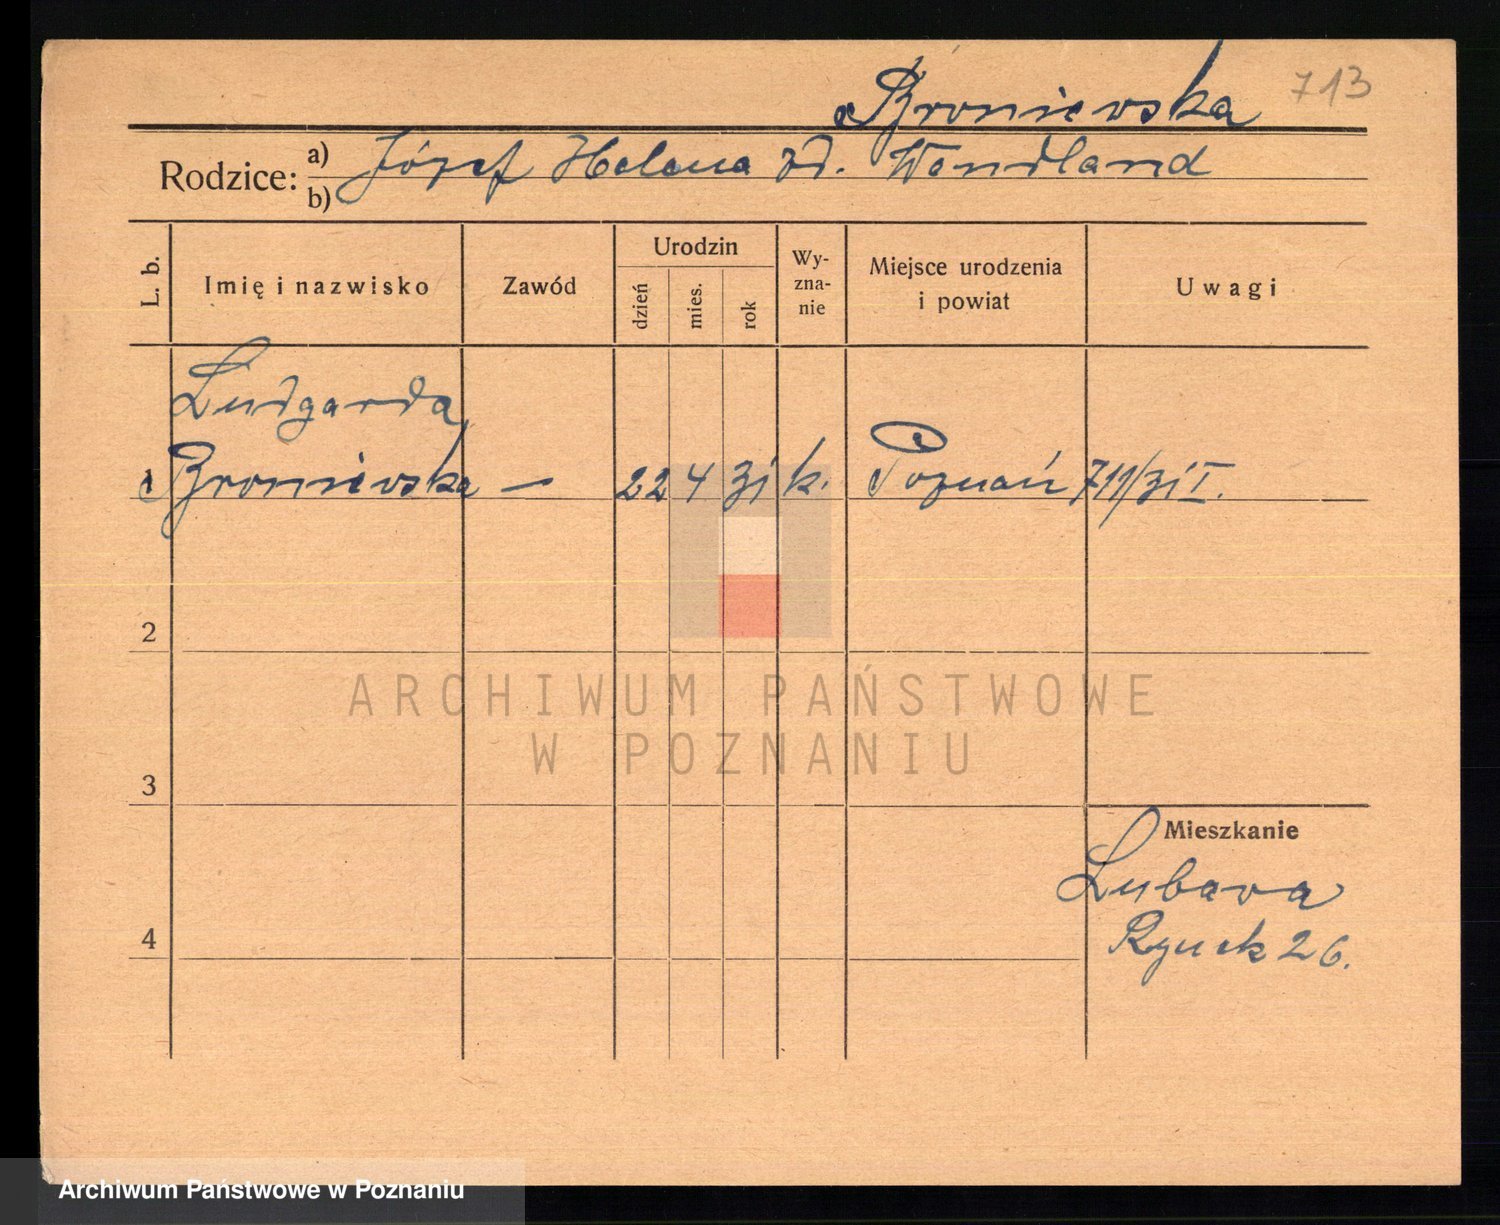 Broniewska 713
Rodzice: a) Józef Helena zd. Wendland
b)
L. b. Imię i nazwisko Zawód Urodzin dzień mies. rok Wy-zna-nie Miejsce urodzenia i powiat Uwagi
Ludgarda
1 Broniewska — 22 4 31 k. Poznań 711/31 I.
2
ARCHIWUM PAŃSTWOWE
W POZNANIU
3
Mieszkanie
Lubawa
4
Rynek 26.
Archiwum Państwowe w Poznaniu